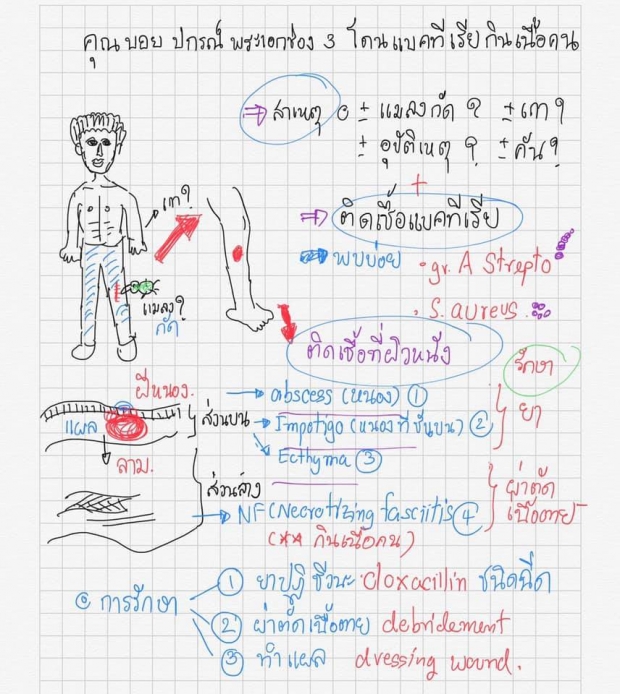 คุณบอย ปกรณ์ พระเอกช่อง 3 โดนแบคทีเรียกินเนื้อคน
⇒ สาเหตุ ๏ ± แมลงกัด ? ± เกา ?
± อุบัติเหตุ ? ± คัน ?
+
⇒ ติดเชื้อแบคทีเรีย
⇒ พบบ่อย · gr. A Strepto
· S. aureus
เกา?
แมลง?
กัด
ติดเชื้อที่ผิวหนัง
รักษา
ฝีหนอง
แผล
ลาม.
ส่วนบน
→ abscess (หนอง) ①
→ Impotigo (หนองที่ชั้นบน) ②
→ Ecthyma ③
ยา
ส่วนล่าง
→ NF (Necrotizing fasciitis ④
(** กินเนื้อคน)
ผ่าตัด
เนื้อตาย
๏ การรักษา
① ยาปฏิชีวนะ cloxacillin ชนิดฉีด
② ผ่าตัดเนื้อตาย debridement
③ ทำแผล dressing wound.